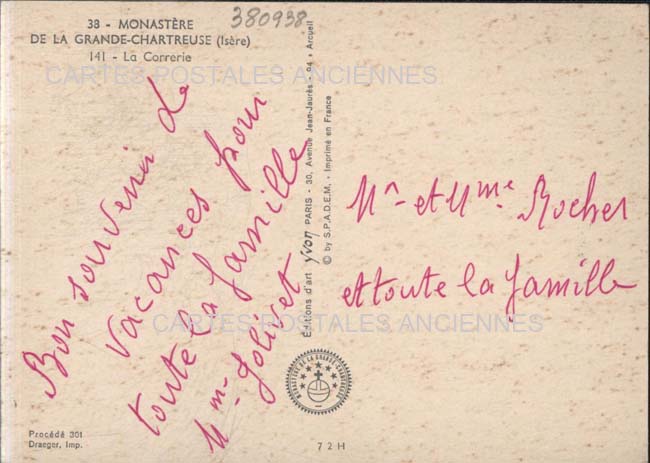 380938
38 - MONASTÈRE
DE LA GRANDE-CHARTREUSE (Isère)
141 - La Correrie
CARTES POSTALES ANCIENNES
Bon souvenir de
vacances pour
toute la famille
Mme Jolivet
Editions d'art yvon PARIS - 30, Avenue Jean-Jaurès - 94 - Arcueil
© by S.P.A.D.E.M. - Imprimé en France
Mr et Mme Rocher
et toute la famille
CARTES POSTALES ANCIENNES
MONASTÈRE DE LA GRANDE CHARTREUSE
Procédé 301
Draeger, Imp.
72H